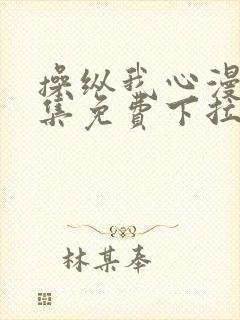 操纵我心漫
集免费下拉
林某奉